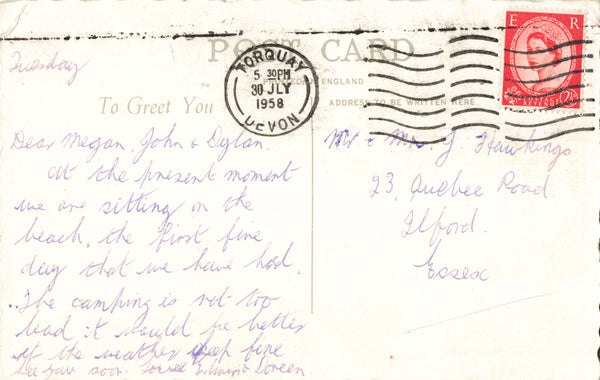 Tuesday
POST CARD
ENGLAND
To Greet You
ADDRESS TO BE WRITTEN HERE
TORQUAY
5 30PM
30 JLY
1958
DEVON
E R
Dear Megan, John & Dylan.
At the present moment
we are sitting on the
beach, the first fine
day that we have had.
The camping is not too
bad it would be better
if the weather keep fine
See you soon. Doreen.
Mr & Mrs J. Hawkings
23, Quebec Road.
Ilford.
Essex